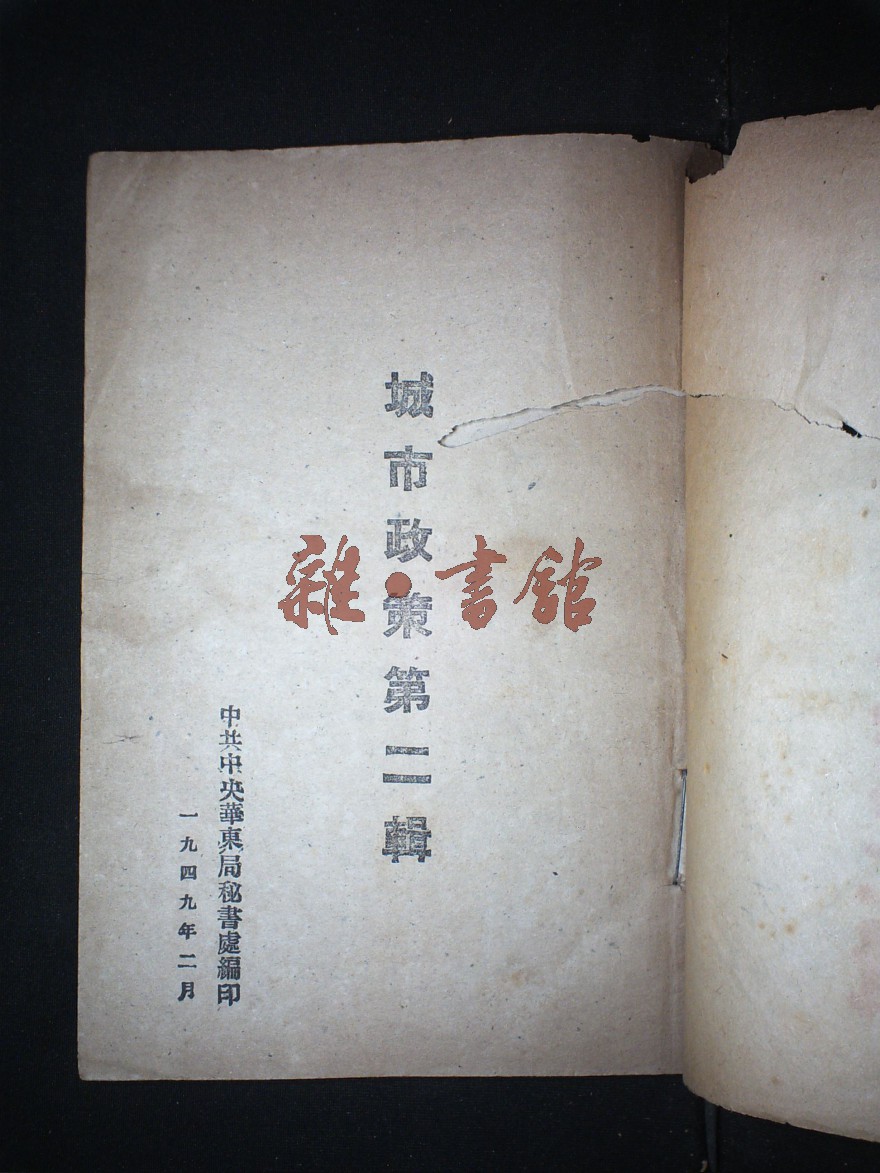 城市政策第二輯
中共中央華東局秘書處編印
一九四九年二月
雜·書館